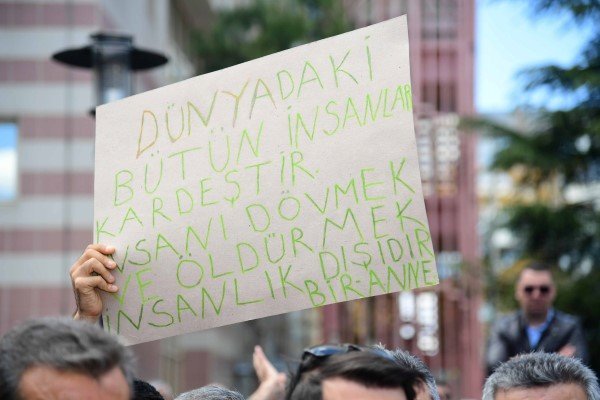 DÜNYADAKİ
BÜTÜN İNSANLAR
KARDEŞTİR.
İNSANI DÖVMEK
VE ÖLDÜRMEK
İNSANLIK DIŞIDIR
BİR ANNE